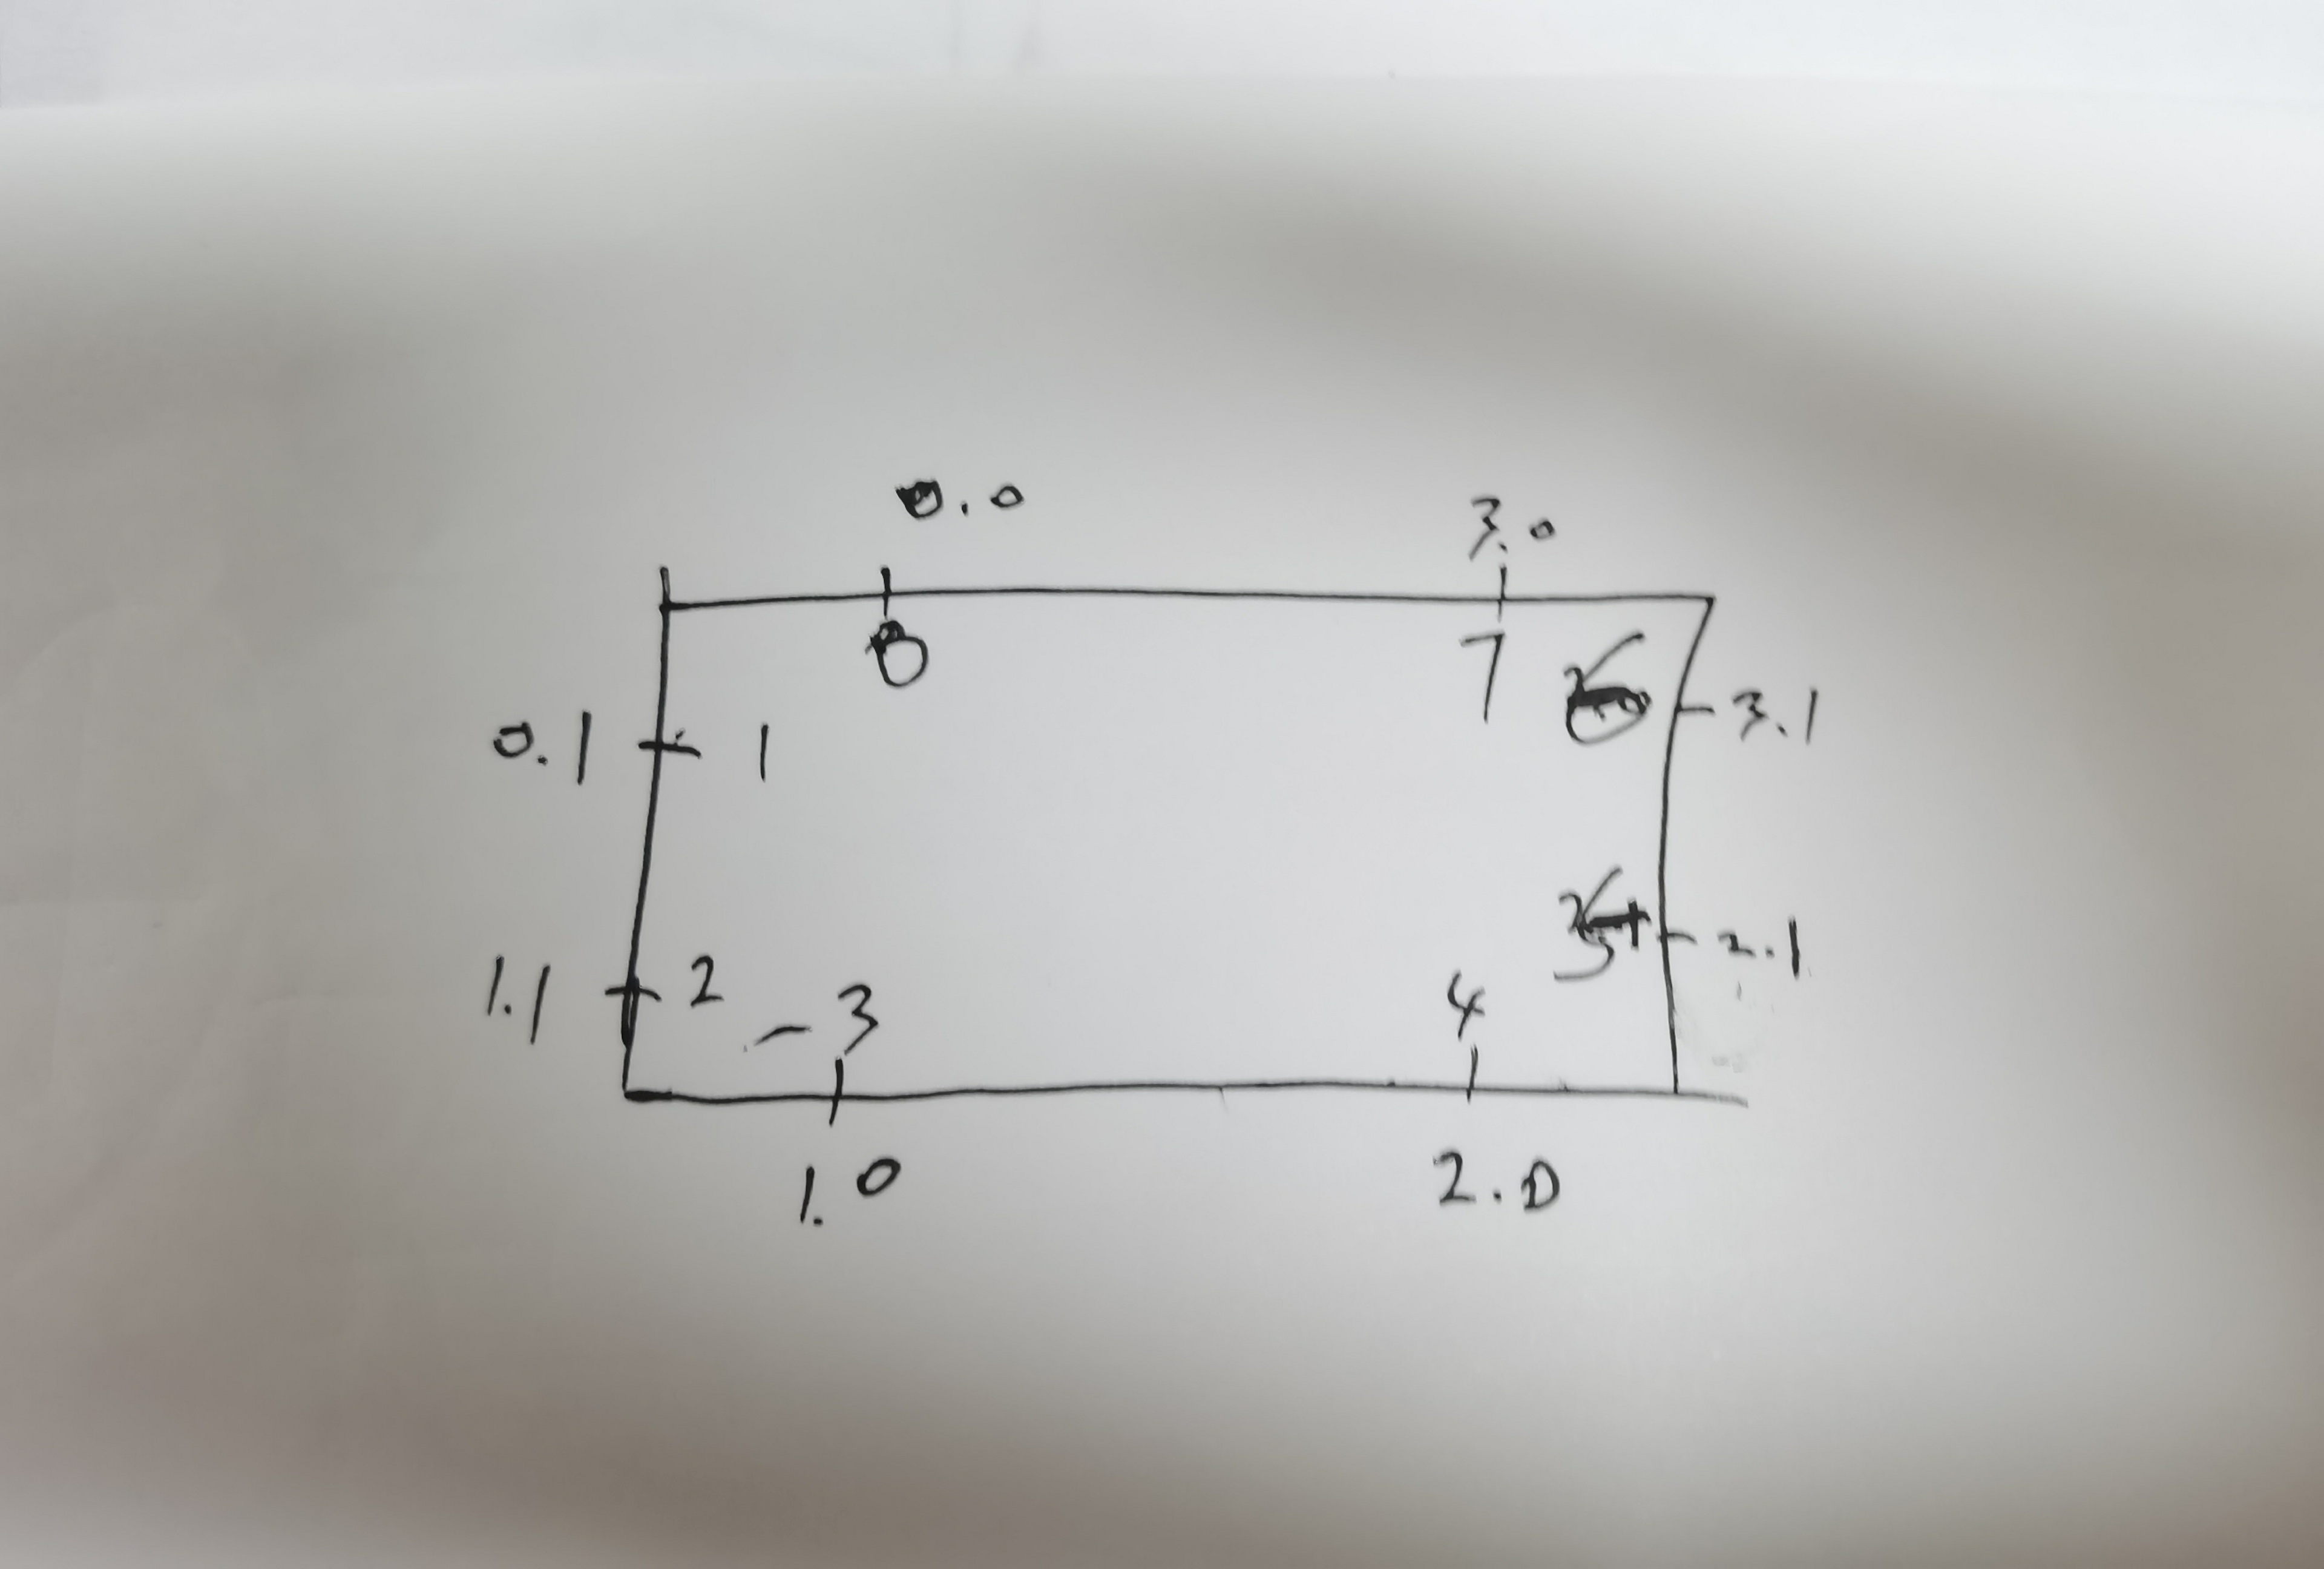 0.0 3.0
0 7
0.1 1 6 3.1
5 2.1
1.1 2 - 3 4
1.0 2.0